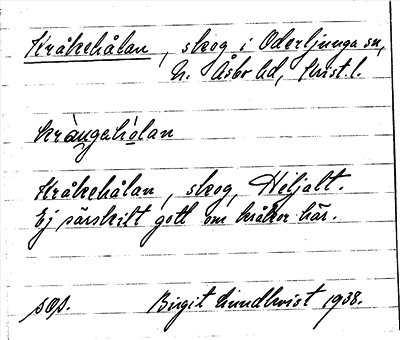 Kråkehålan, skog i Oderljunga sn,
N. Åsbo hd, Krist. l.
kràngahòlan
Kråkehålan, skog, Heljalt.
Ej särskilt gott om kråkor här.
sep. Birgit Lundkvist 1938.